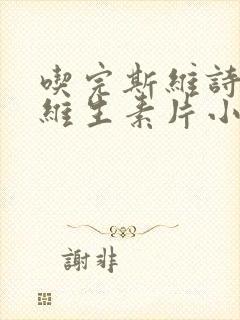 喫完斯維詩
維生素片小
謝非